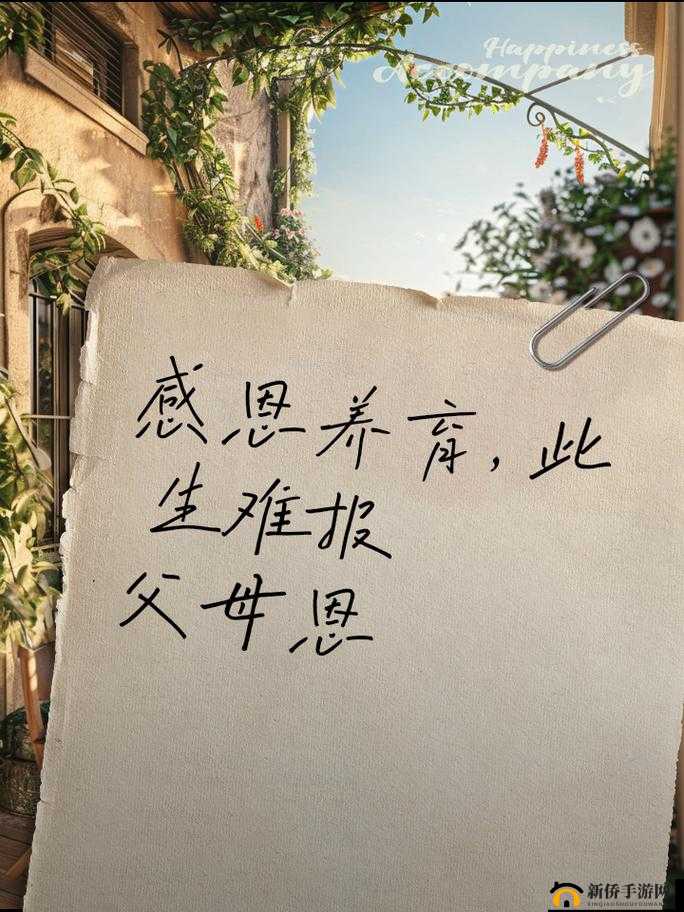 Happiness
Accompany
感恩养育,此
生难报
父母恩
新侨手游网
XINQIAOSHOUYOUWANG